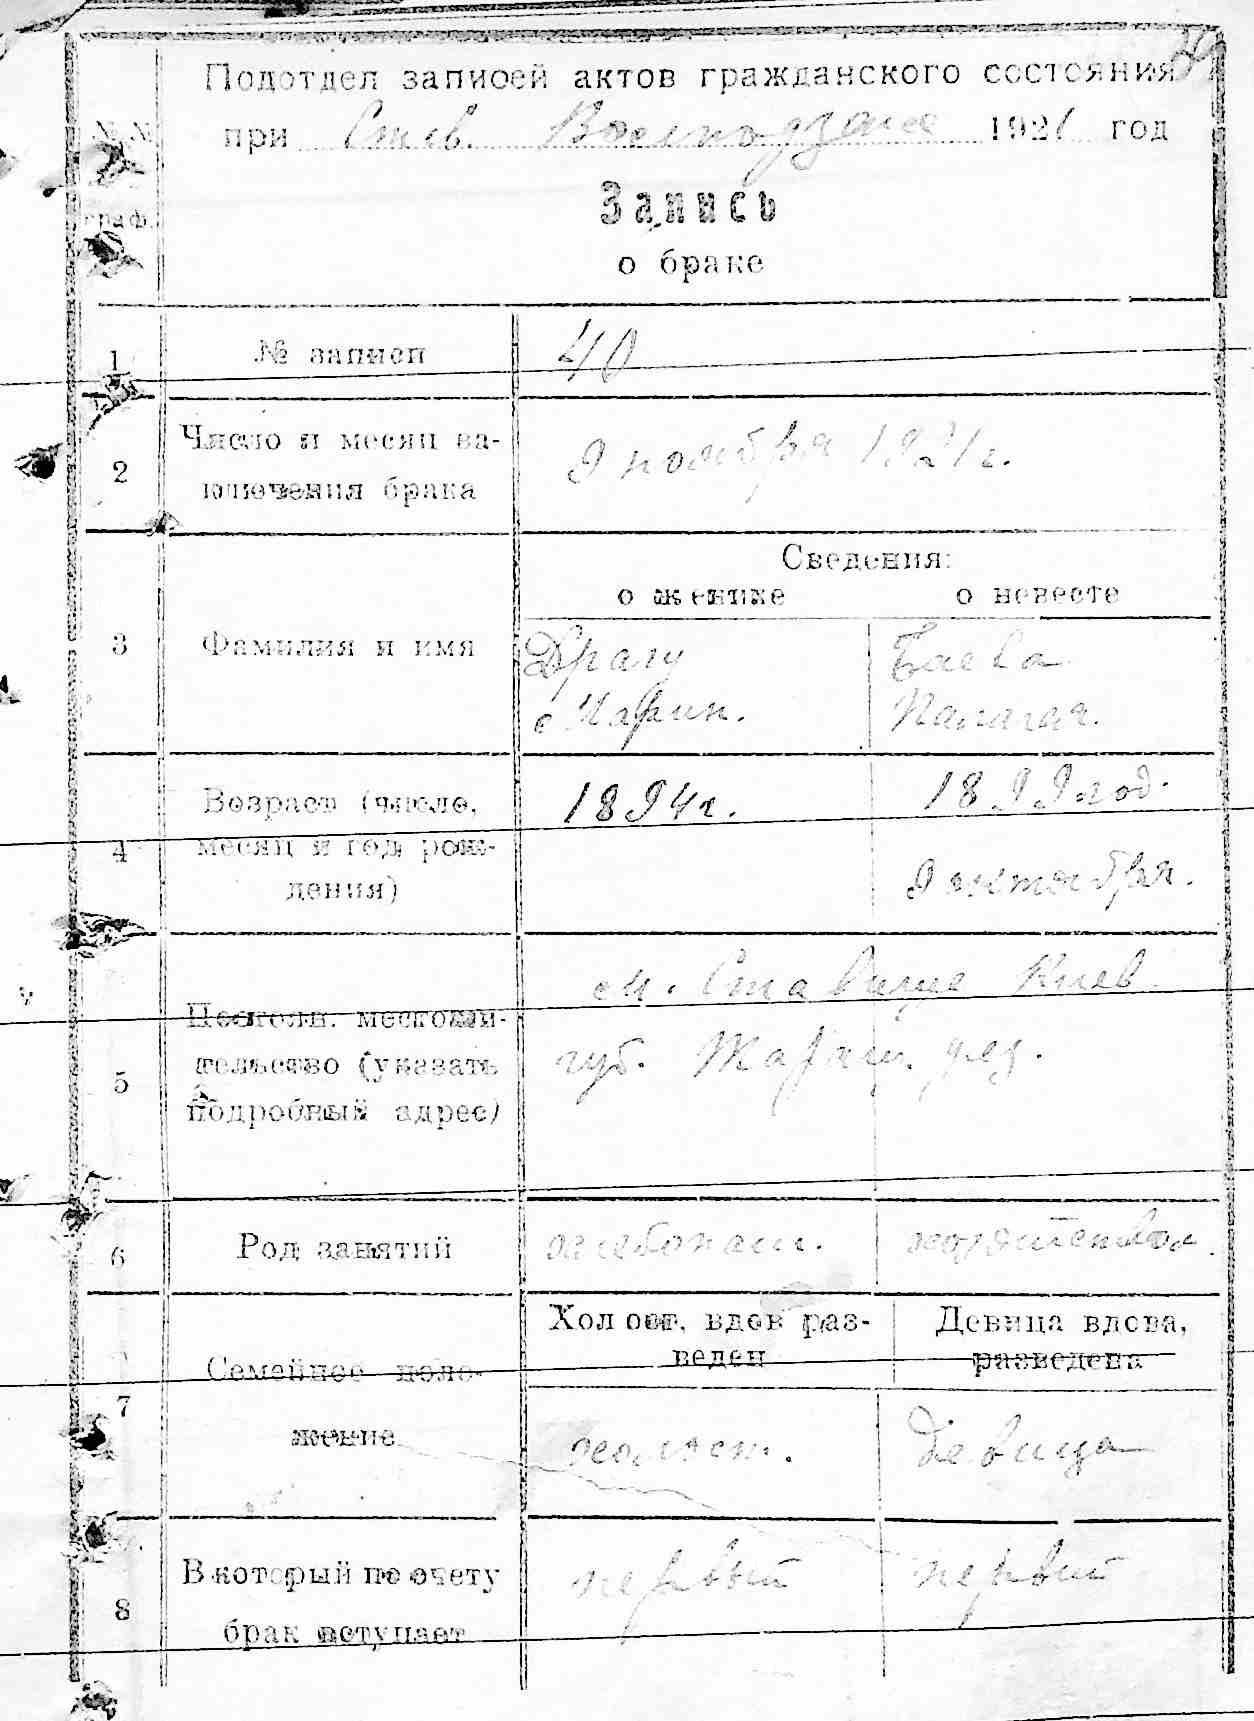 Подотдел записей актов гражданского состояния
при Став. 1921 год
№№
граф.
Запись
о браке
1 № записи 40
2 Число и месяц за-
ключения брака 9 ноября 1921 г.
Сведения:
о женихе о невесте
3 Фамилия и имя Баева
4 Возраст (число, 1894 г. 1899 год.
месяц и год рож-
дения) 9 октября.
5 м. Ставище Киев.
Постоян. местожи-
тельство (указать губ. Таращ. уез.
подробный адрес)
6 Род занятий хлебопаш.
Холост, вдов раз- Девица вдова,
веден разведена
7 Семейное поло-
жение холост. девица
8 В который по счету первый первый
брак вступает